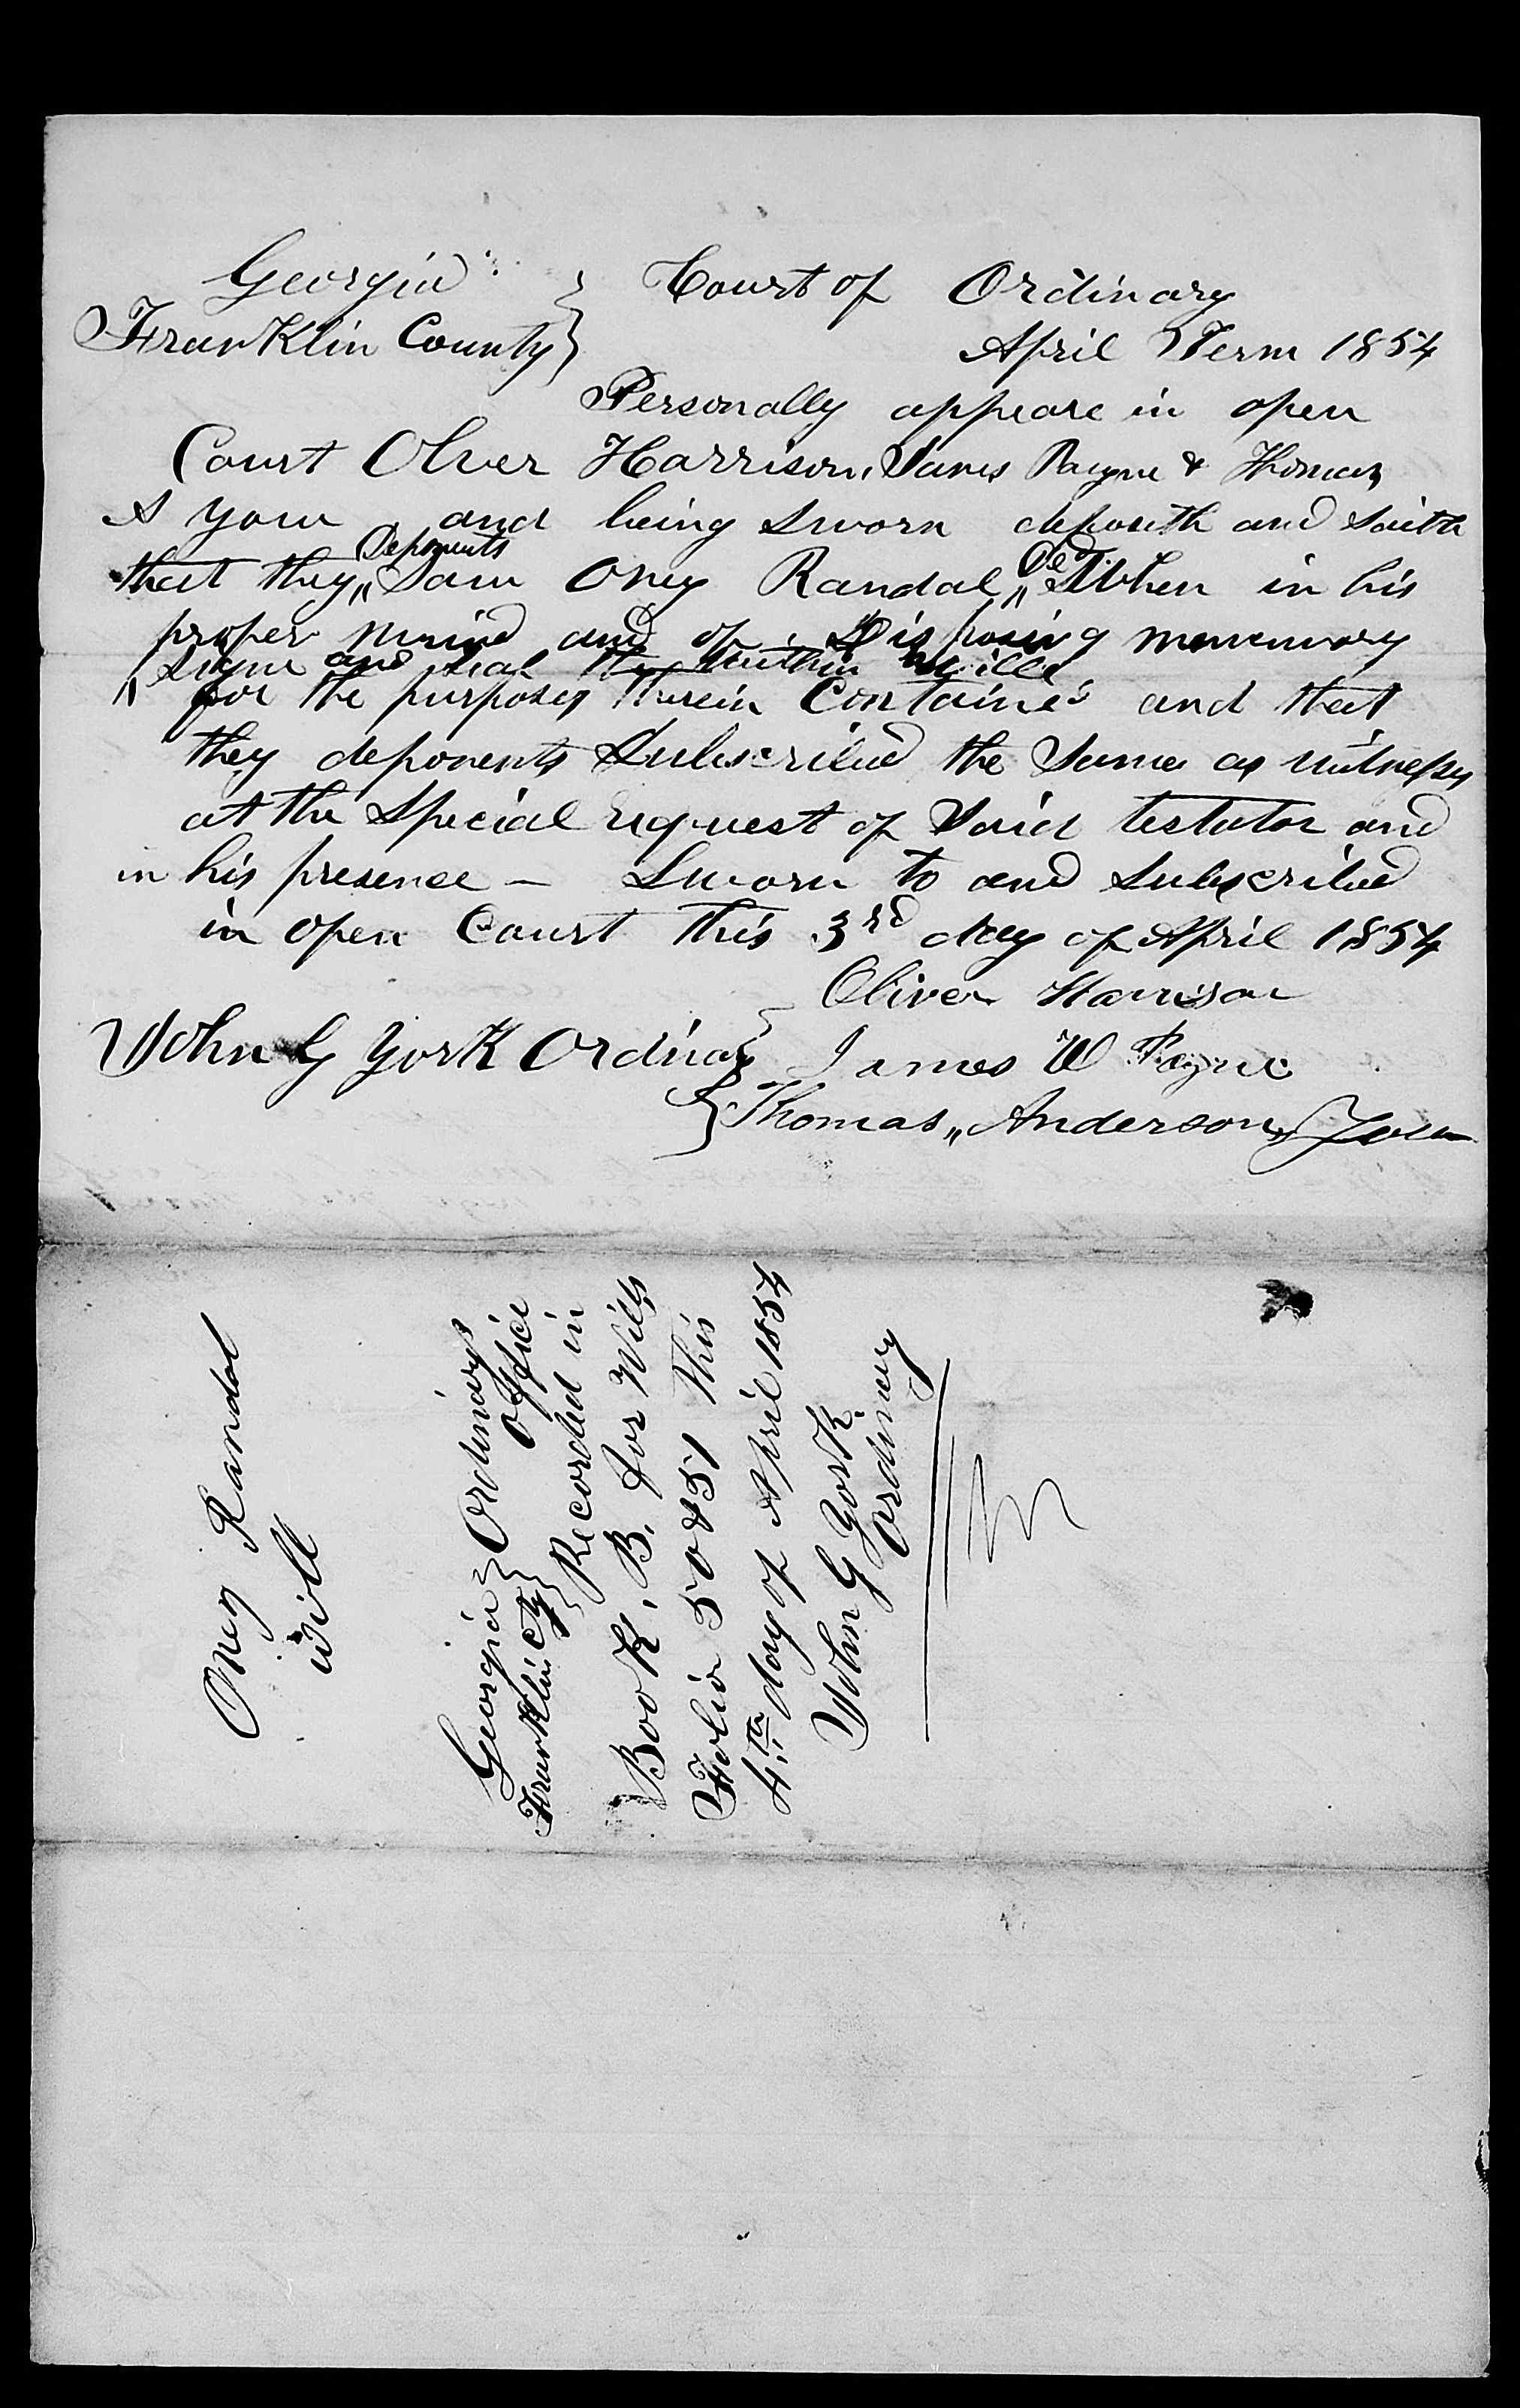 Georgia } Court of Ordinary
Franklin County } April Term 1854
Personally appeare in open
Court Oliver Harrison, James Payne & Thomas
A Yow and being Sworn deposith and Saith
that they " Deponents Saw Oney Randal " Decd When in his
proper mind and of Disposing mememory
" Sign and seal the within will
for the purposes therein Contained and that
they deponents Subscribed the Same as witnesses
at the Special request of Said testator and
in his presence – Sworn to and subscribed
in open Court this 3rd day of April 1854
Oliver Harrison
John G York Ordinary } James W Payne
} Thomas " Anderson
Oney Randal
Will
Georgia } Ordinarys
Franklin Cty } office
Recorded in
Book, B, for Wills
Folio 50 & 51 this
4th day of April 1854
John G York
Ordinary